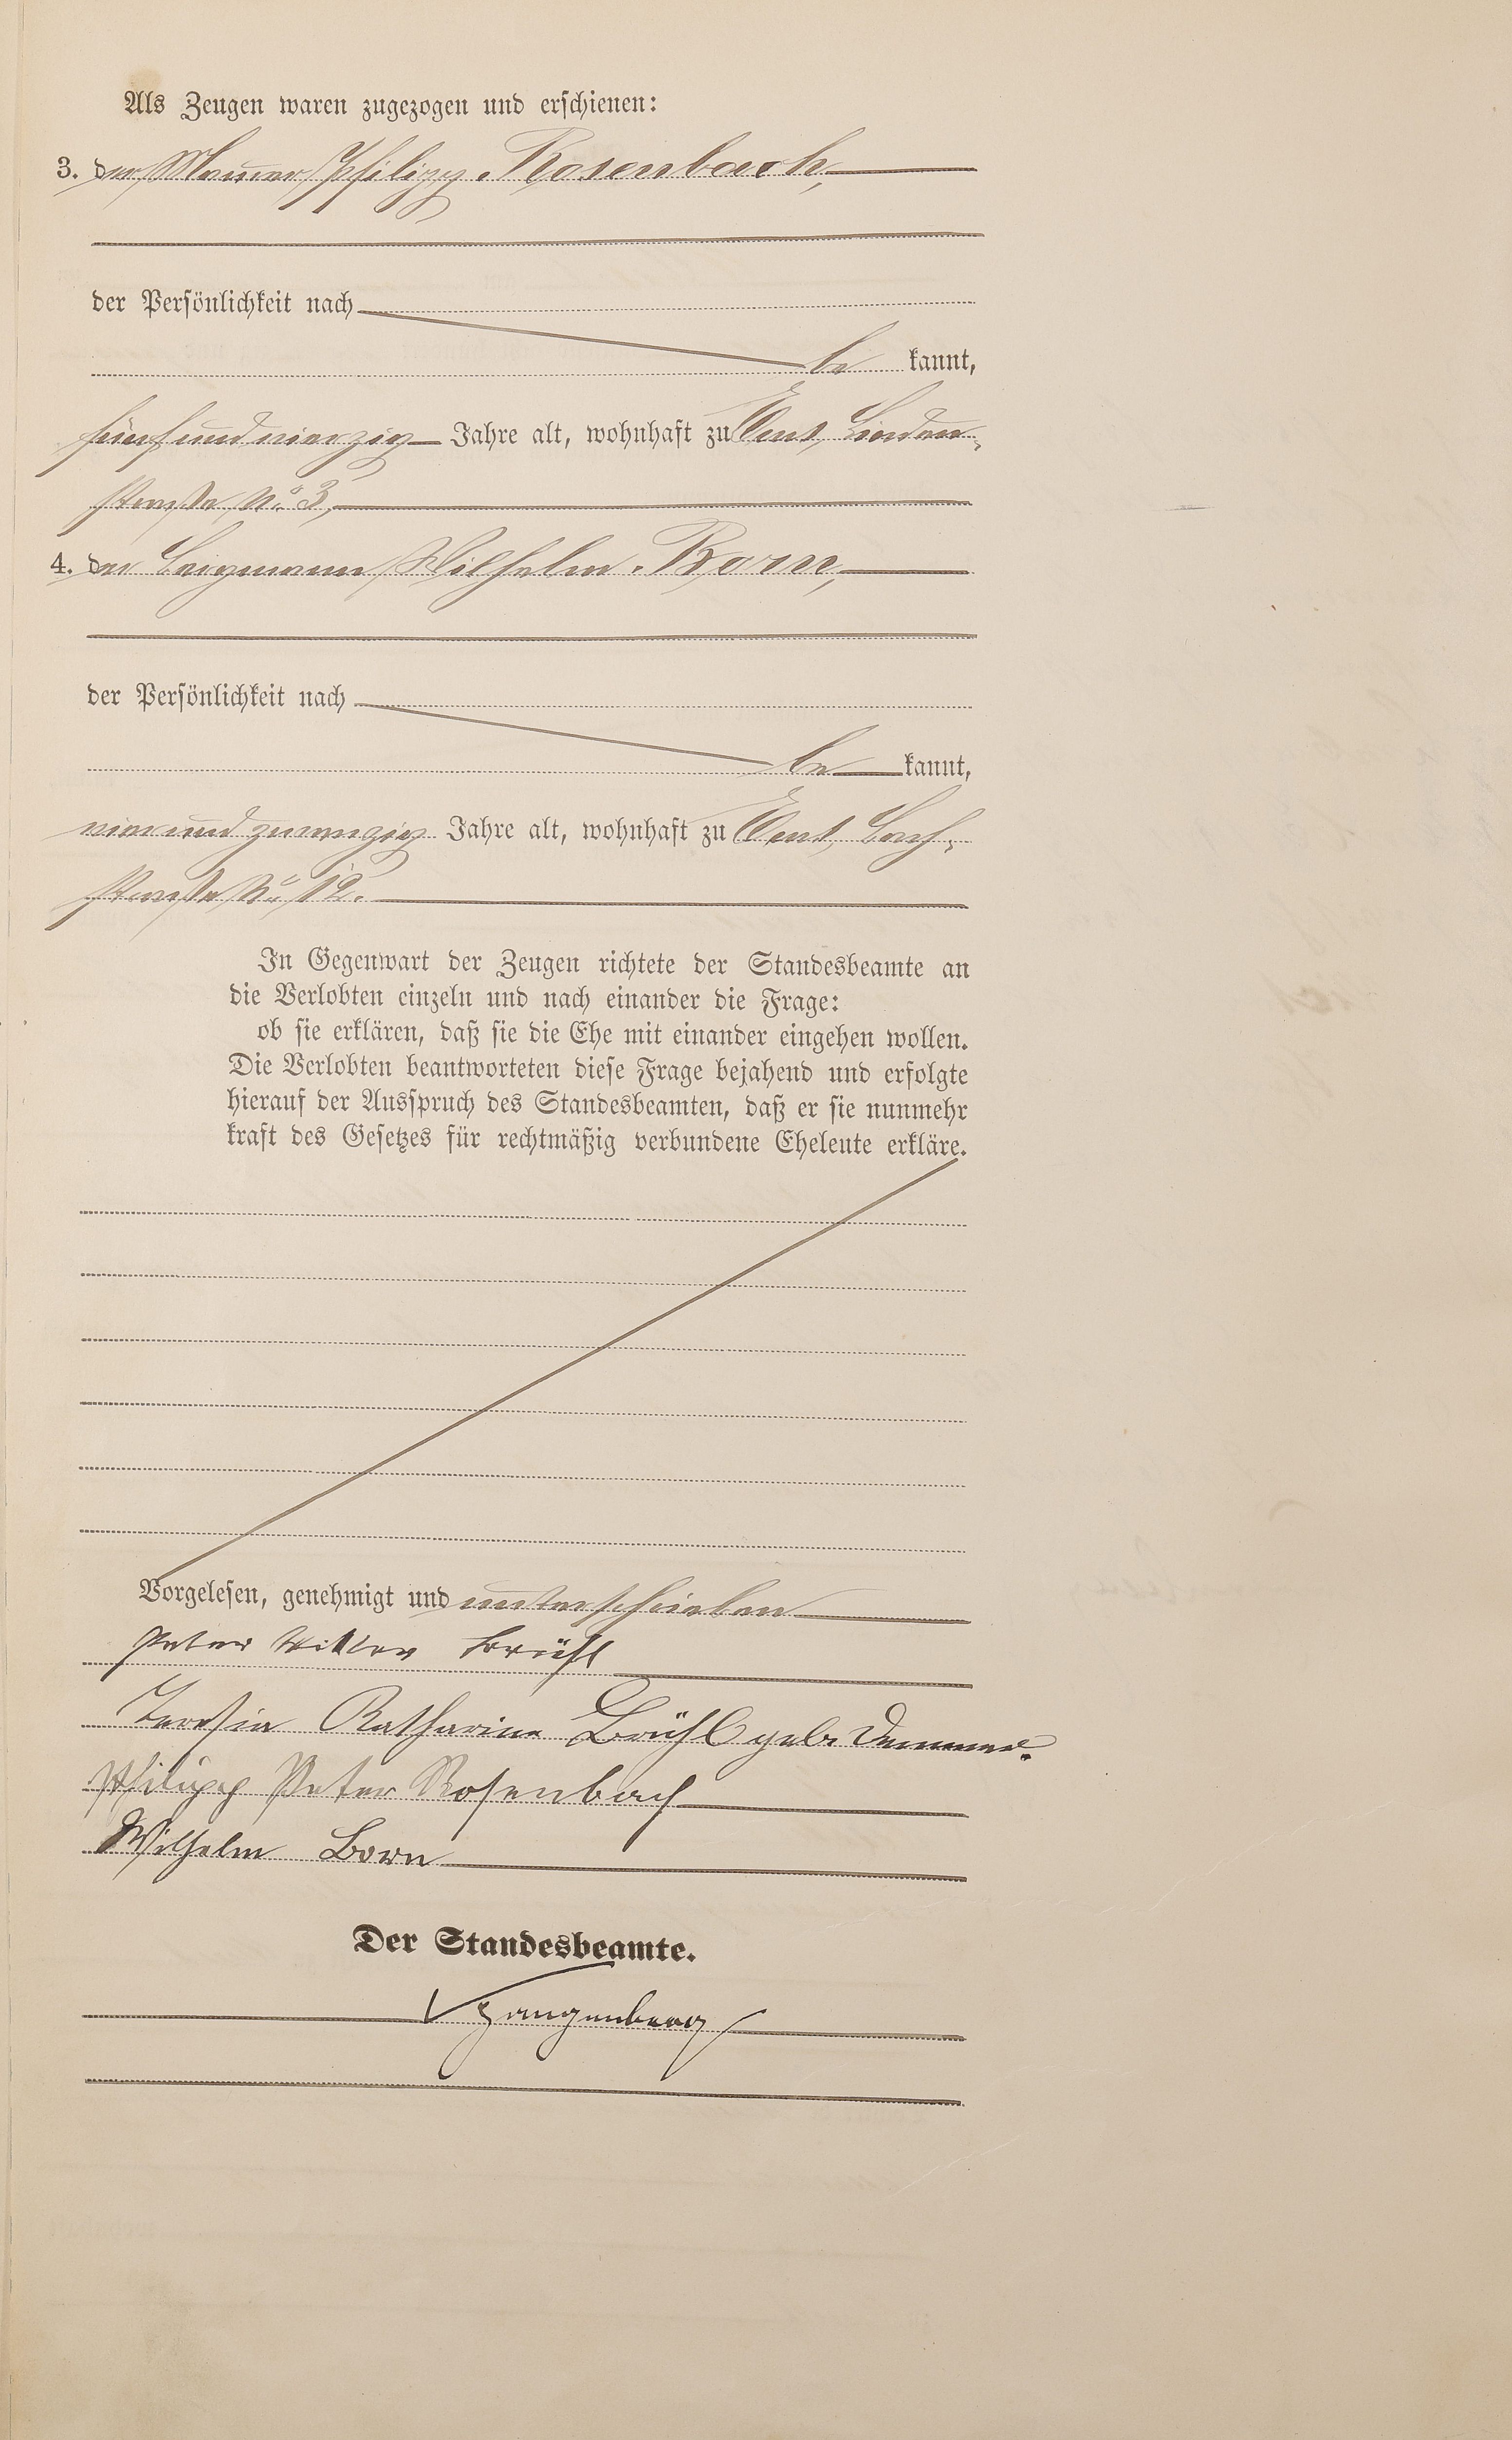 Als Zeugen waren zugezogen und erschienen:
3. der Maurer Philipp Rosenbach,
der Persönlichkeit nach
be kannt,
fünf und vierzig Jahre alt, wohnhaft zu Ems, Linden-
straße No 3,
4. der Bergmann Wilhelm Born,
der Persönlichkeit nach
be kannt,
vier und zwanzig Jahre alt, wohnhaft zu Ems, Bach-
straße No 12.
In Gegenwart der Zeugen richtete der Standesbeamte an
die Verlobten einzeln und nach einander die Frage:
ob sie erklären, daß sie die Ehe mit einander eingehen wollen.
Die Verlobten beantworteten diese Frage bejahend und erfolgte
hierauf der Ausspruch des Standesbeamten, daß er sie nunmehr
kraft des Gesetzes für rechtmäßig verbundene Eheleute erkläre.
Vorgelesen, genehmigt und unterschrieben
Peter Brühl
Katharina Brühl geb.
Philipp Peter Rosenbach
Wilhelm Born
Der Standesbeamte.